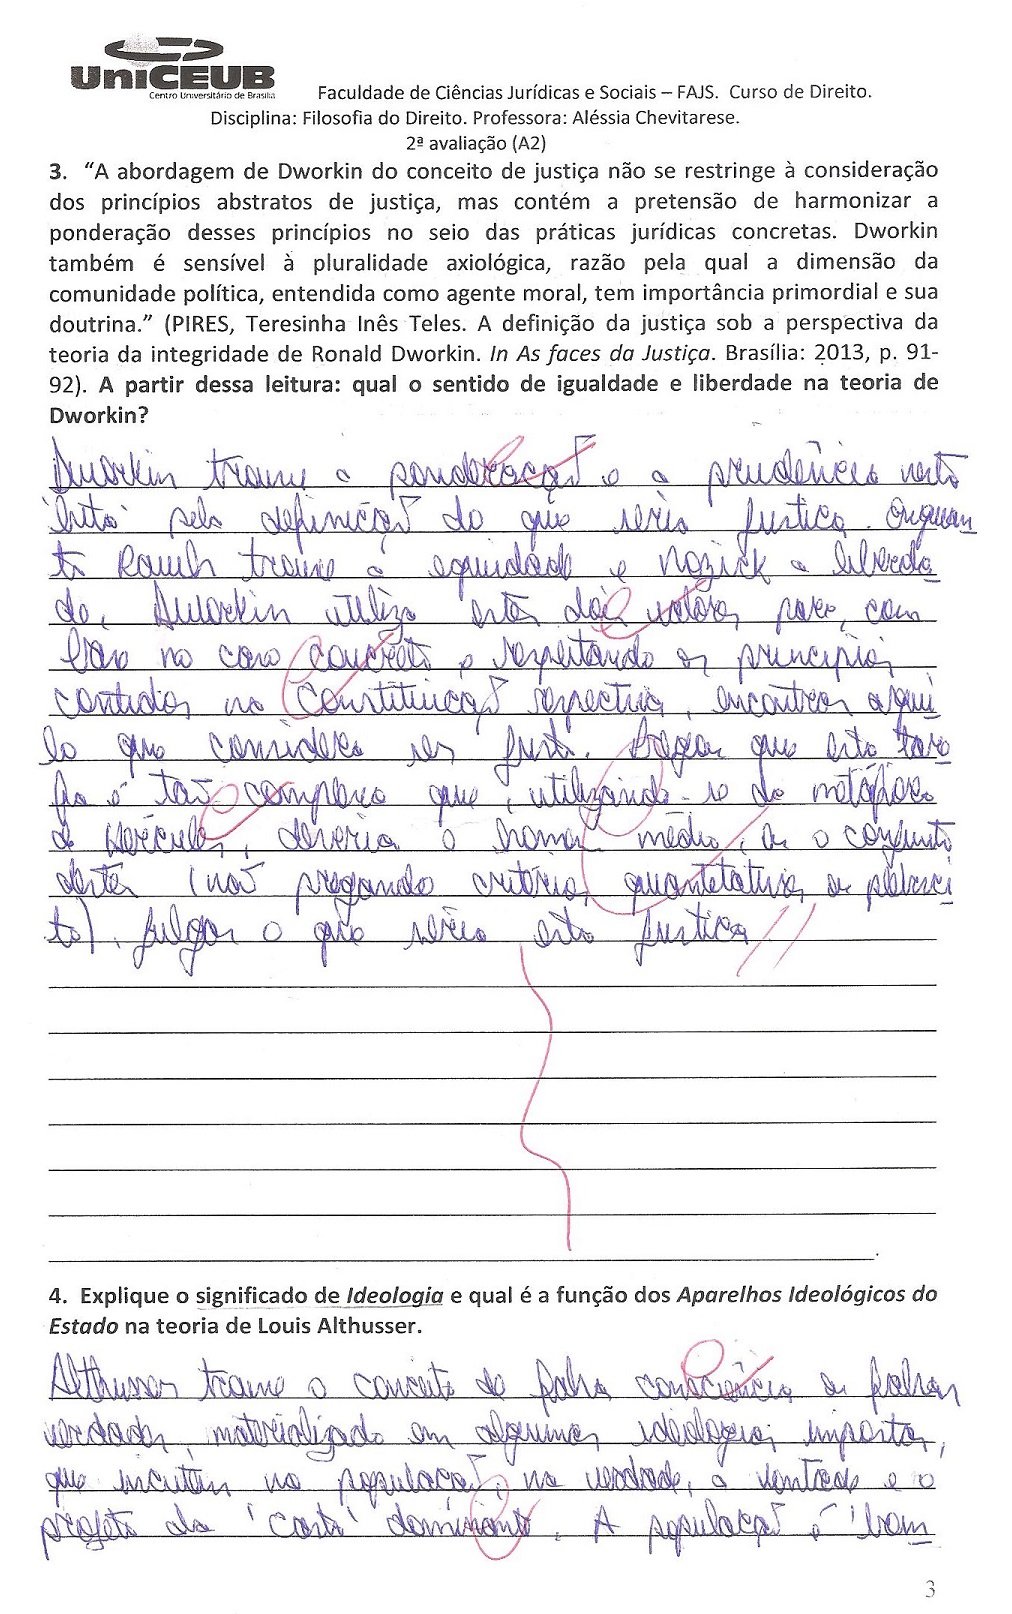 UniCEUB
Centro Universitário de Brasília
Faculdade de Ciências Jurídicas e Sociais – FAJS. Curso de Direito.
Disciplina: Filosofia do Direito. Professora: Aléssia Chevitarese.
2ª avaliação (A2)
3. “A abordagem de Dworkin do conceito de justiça não se restringe à consideração
dos princípios abstratos de justiça, mas contém a pretensão de harmonizar a
ponderação desses princípios no seio das práticas jurídicas concretas. Dworkin
também é sensível à pluralidade axiológica, razão pela qual a dimensão da
comunidade política, entendida como agente moral, tem importância primordial e sua
doutrina.” (PIRES, Teresinha Inês Teles. A definição da justiça sob a perspectiva da
teoria da integridade de Ronald Dworkin. In As faces da Justiça. Brasília: 2013, p. 91-
92). A partir dessa leitura: qual o sentido de igualdade e liberdade na teoria de
Dworkin?
Dworkin trouxe a ponderação e a prudência nesta
'luta' pela definição do que seria justiça. Enquan
to Rawls trouxe a equidade e Nozick a liberda
de, Dworkin utiliza estes dois valores para, com
base no caso concreto e respeitando os princípios
contidos na Constituição respectiva, encontrar aqui
lo que considera ser justo. Segue que esta tare
fa é tão complexa que, utilizando-se da metáfora
de Hércules, deveria o homem médio, ou o conjunto
destes (não pregando critérios quantitativos ou plebisci
to), julgar o que seria esta justiça.
4. Explique o significado de Ideologia e qual é a função dos Aparelhos Ideológicos do
Estado na teoria de Louis Althusser.
Althusser trouxe o conceito de falsa consciência ou falsas
verdades, materializado em algumas ideologias impostas,
que incutem na população, na verdade, a vontade e o
projeto da 'casta' dominante. A população é 'bom
3